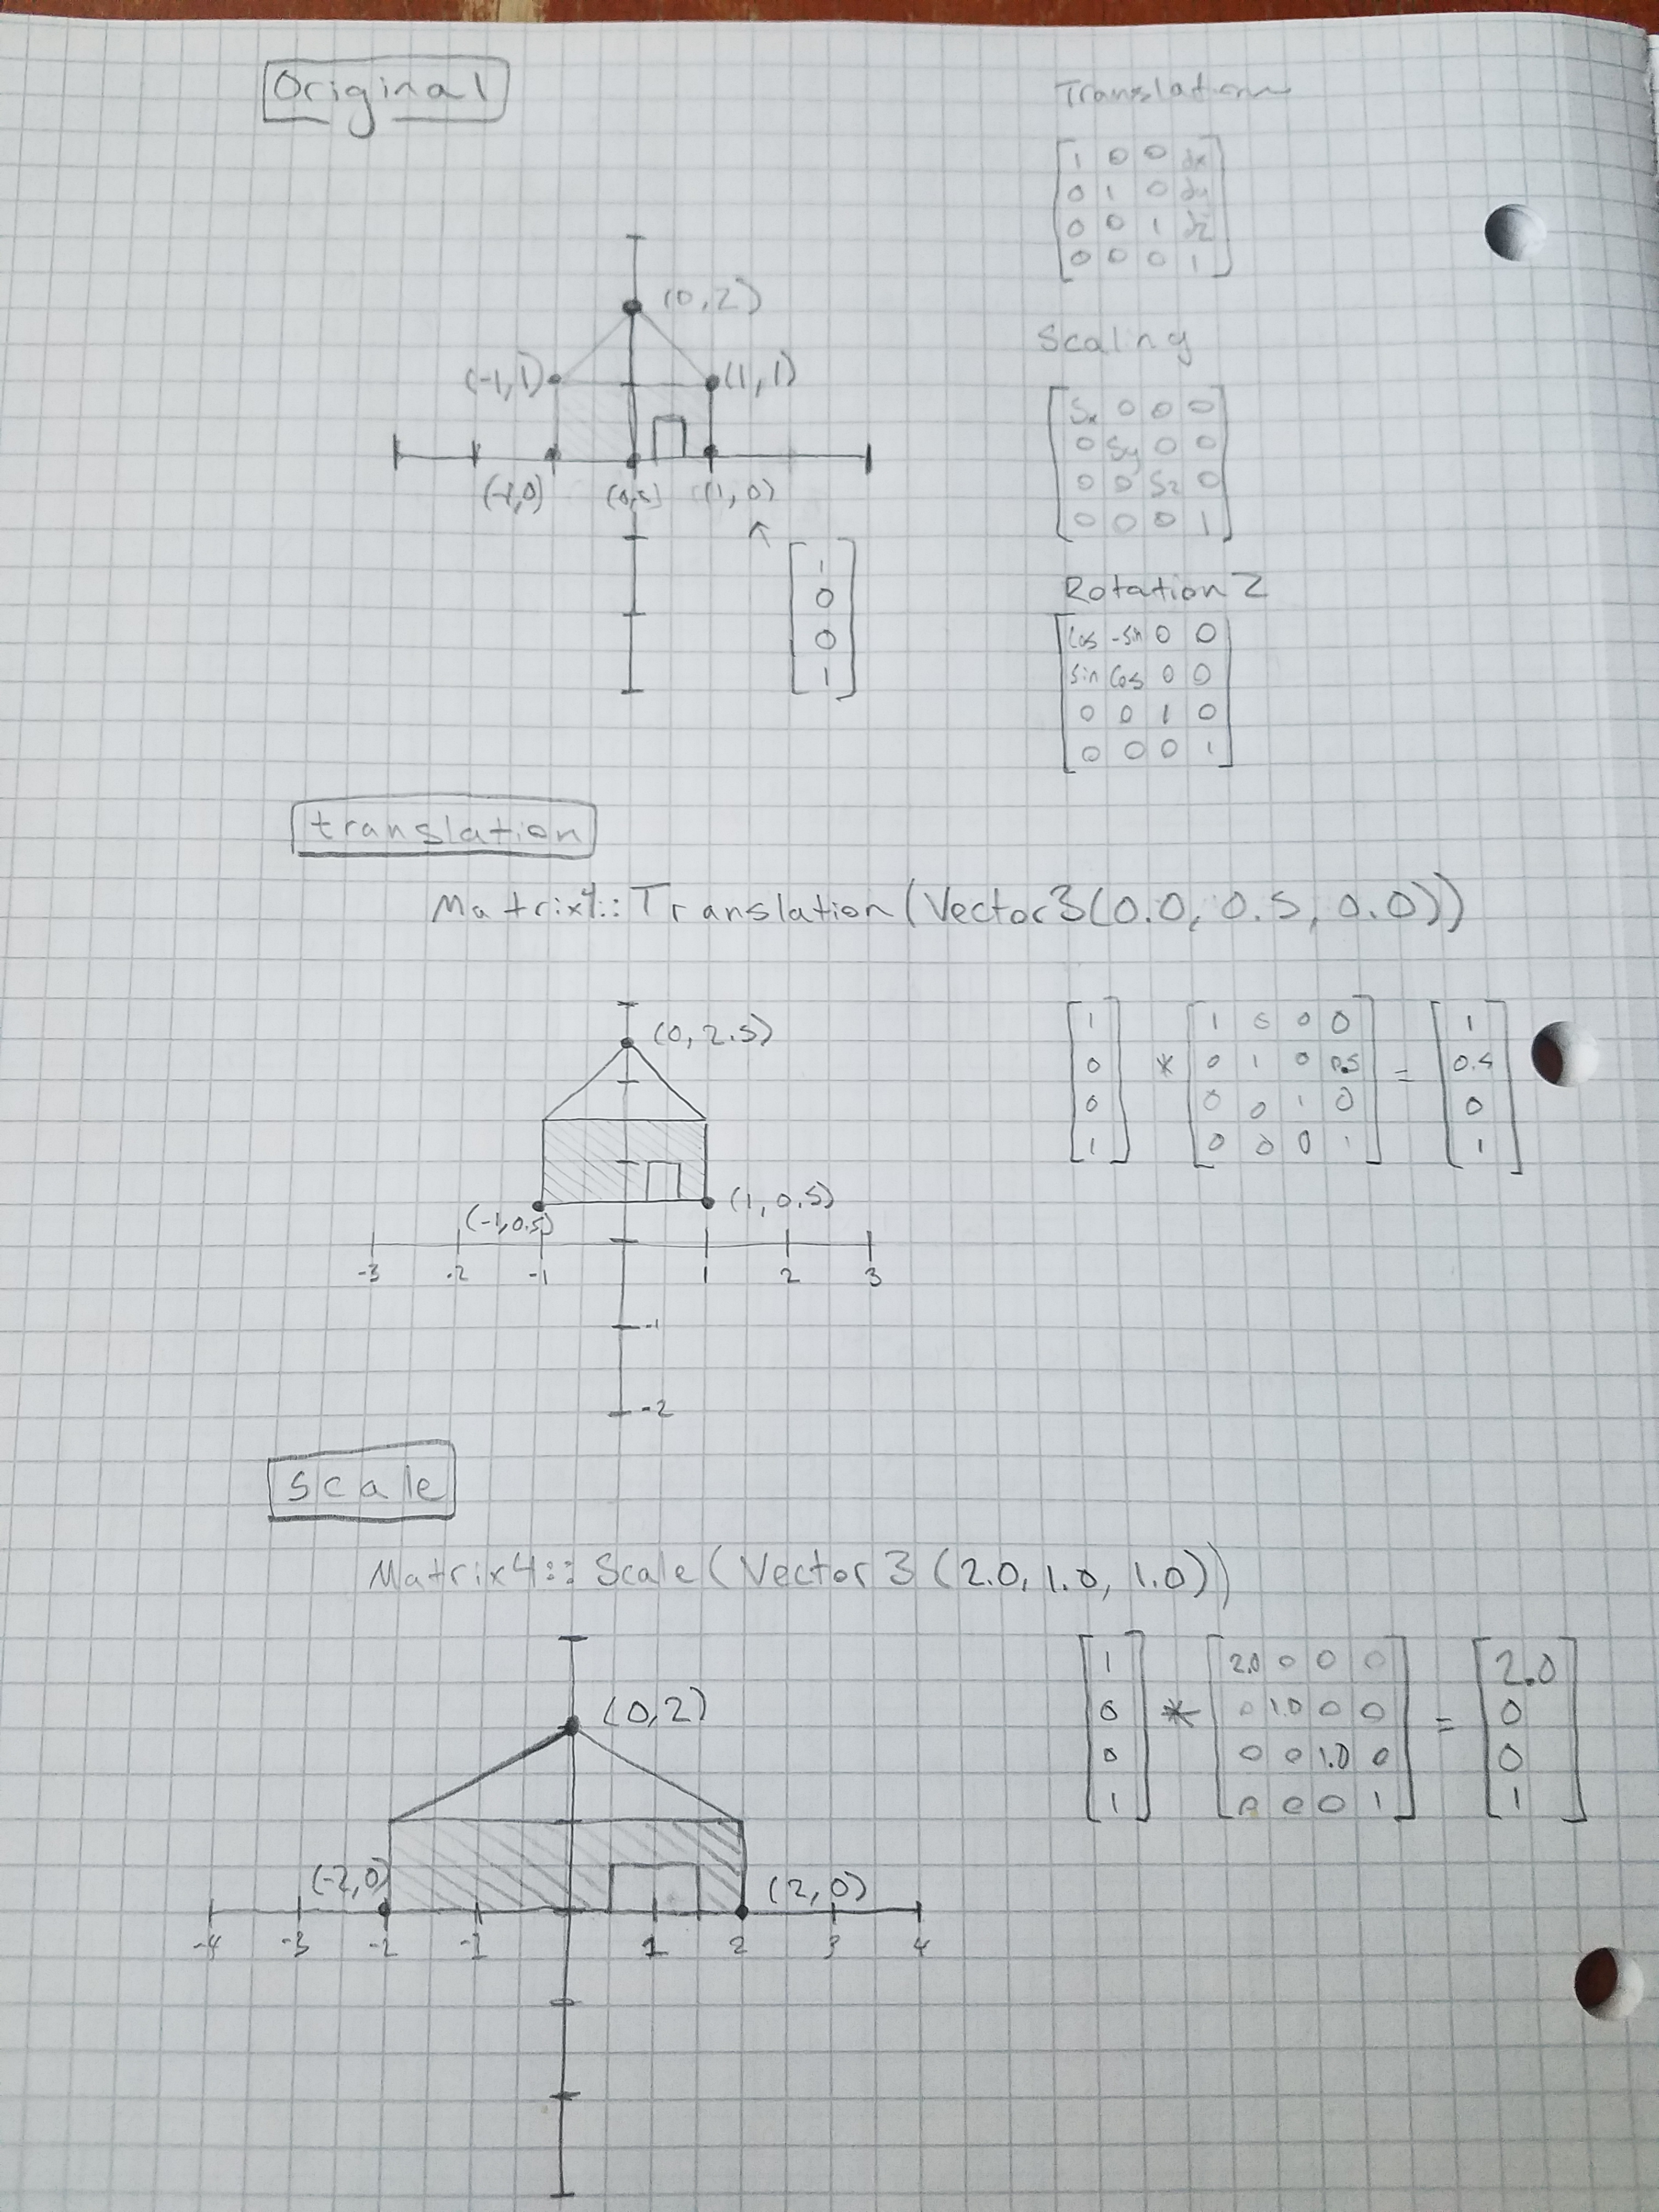 Original
Translation
[1 0 0 dx]
[0 1 0 dy]
[0 0 1 dz]
[0 0 0 1]
(0,2)
(-1,1)
(1,1)
Scaling
[Sx 0 0 0]
[0 Sy 0 0]
[0 0 Sz 0]
[0 0 0 1]
(1,0)
[1
0
0
1]
Rotation Z
[cos -sin 0 0]
[sin cos 0 0]
[0 0 1 0]
[0 0 0 1]
translation
Matrix4::Translation(Vector3(0.0, 0.5, 0.0))
(0, 2.5)
(-1,0.5)
(1, 0.5)
-3 -2 -1 1 2 3
-1
-2
[1] [1 0 0 0] [1]
[0] * [0 1 0 0.5] = [0.5]
[0] [0 0 1 0] [0]
[1] [0 0 0 1] [1]
scale
Matrix4::Scale(Vector3(2.0, 1.0, 1.0))
(0,2)
(-2,0)
(2,0)
-4 -3 -2 -1 1 2 3 4
[1] [2.0 0 0 0] [2.0]
[0] * [0 1.0 0 0] = [0]
[0] [0 0 1.0 0] [0]
[1] [0 0 0 1] [1]